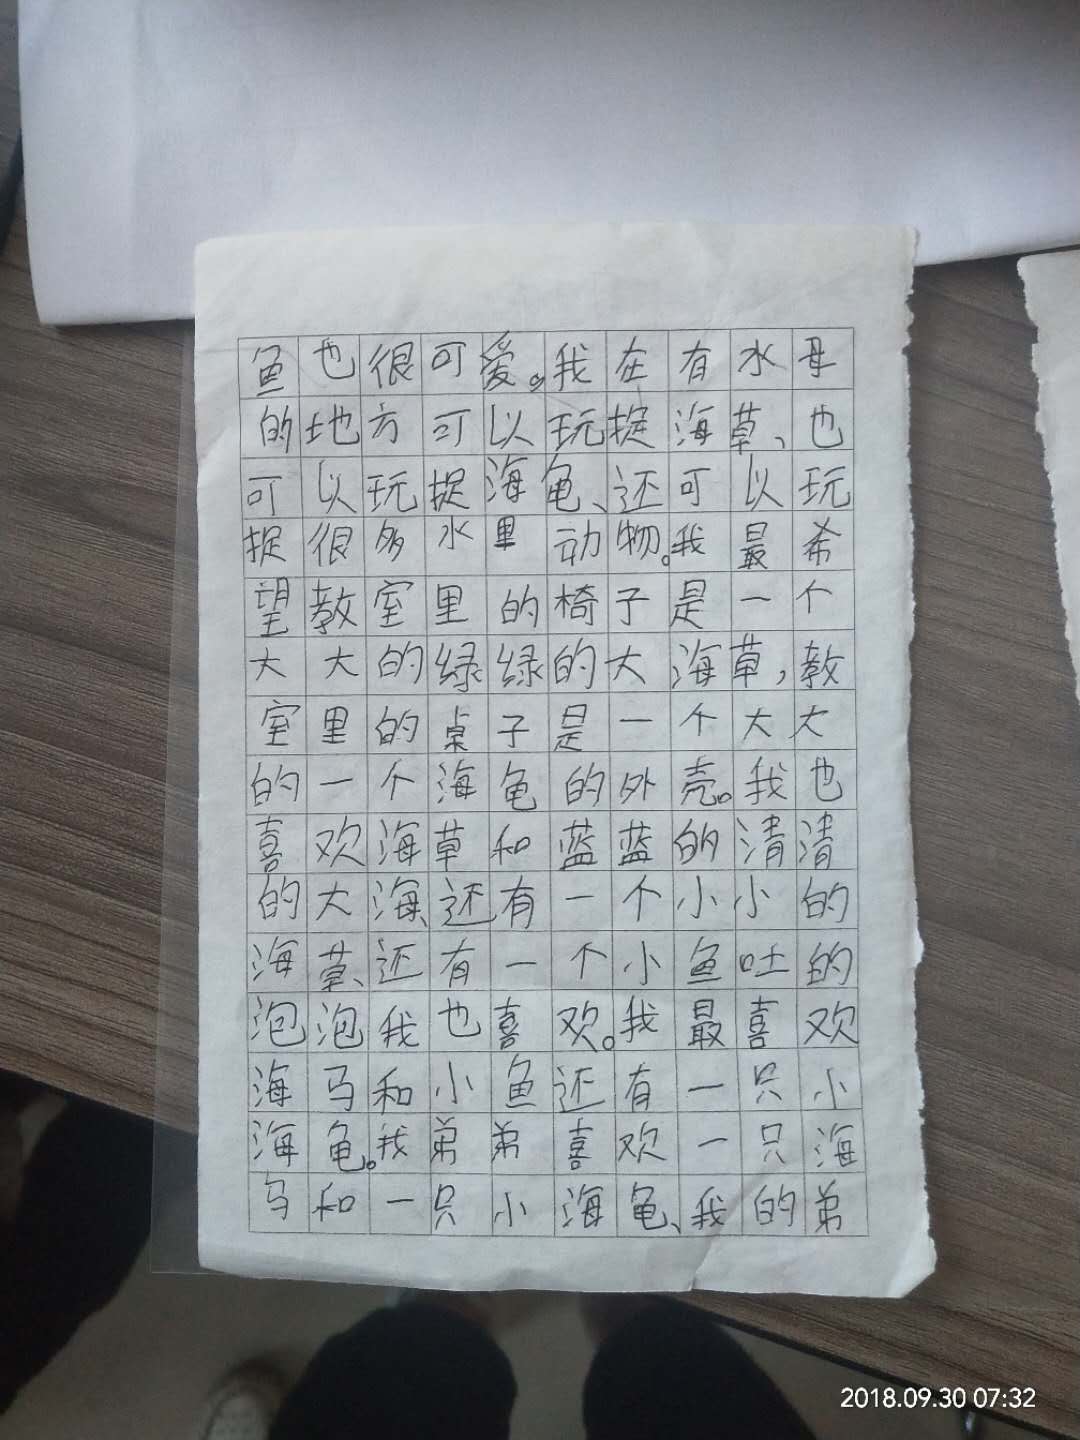 鱼也很可爱。我在有水母
的地方可以玩捉海草、也
可以玩捉海龟、还可以玩
捉很多水里动物。我最希
望教室里的椅子是一个
大大的绿绿的大海草，教
室里的桌子是一个大大
的一个海龟的外壳。我也
喜欢海草和蓝蓝的清清
的大海、还有一个小小的
海草、还有一个小鱼吐的
泡泡我也喜欢。我最喜欢
海马和小鱼还有一只小
海龟。我弟弟喜欢一只海
马和一只小海龟、我的弟
2018.09.30 07:32